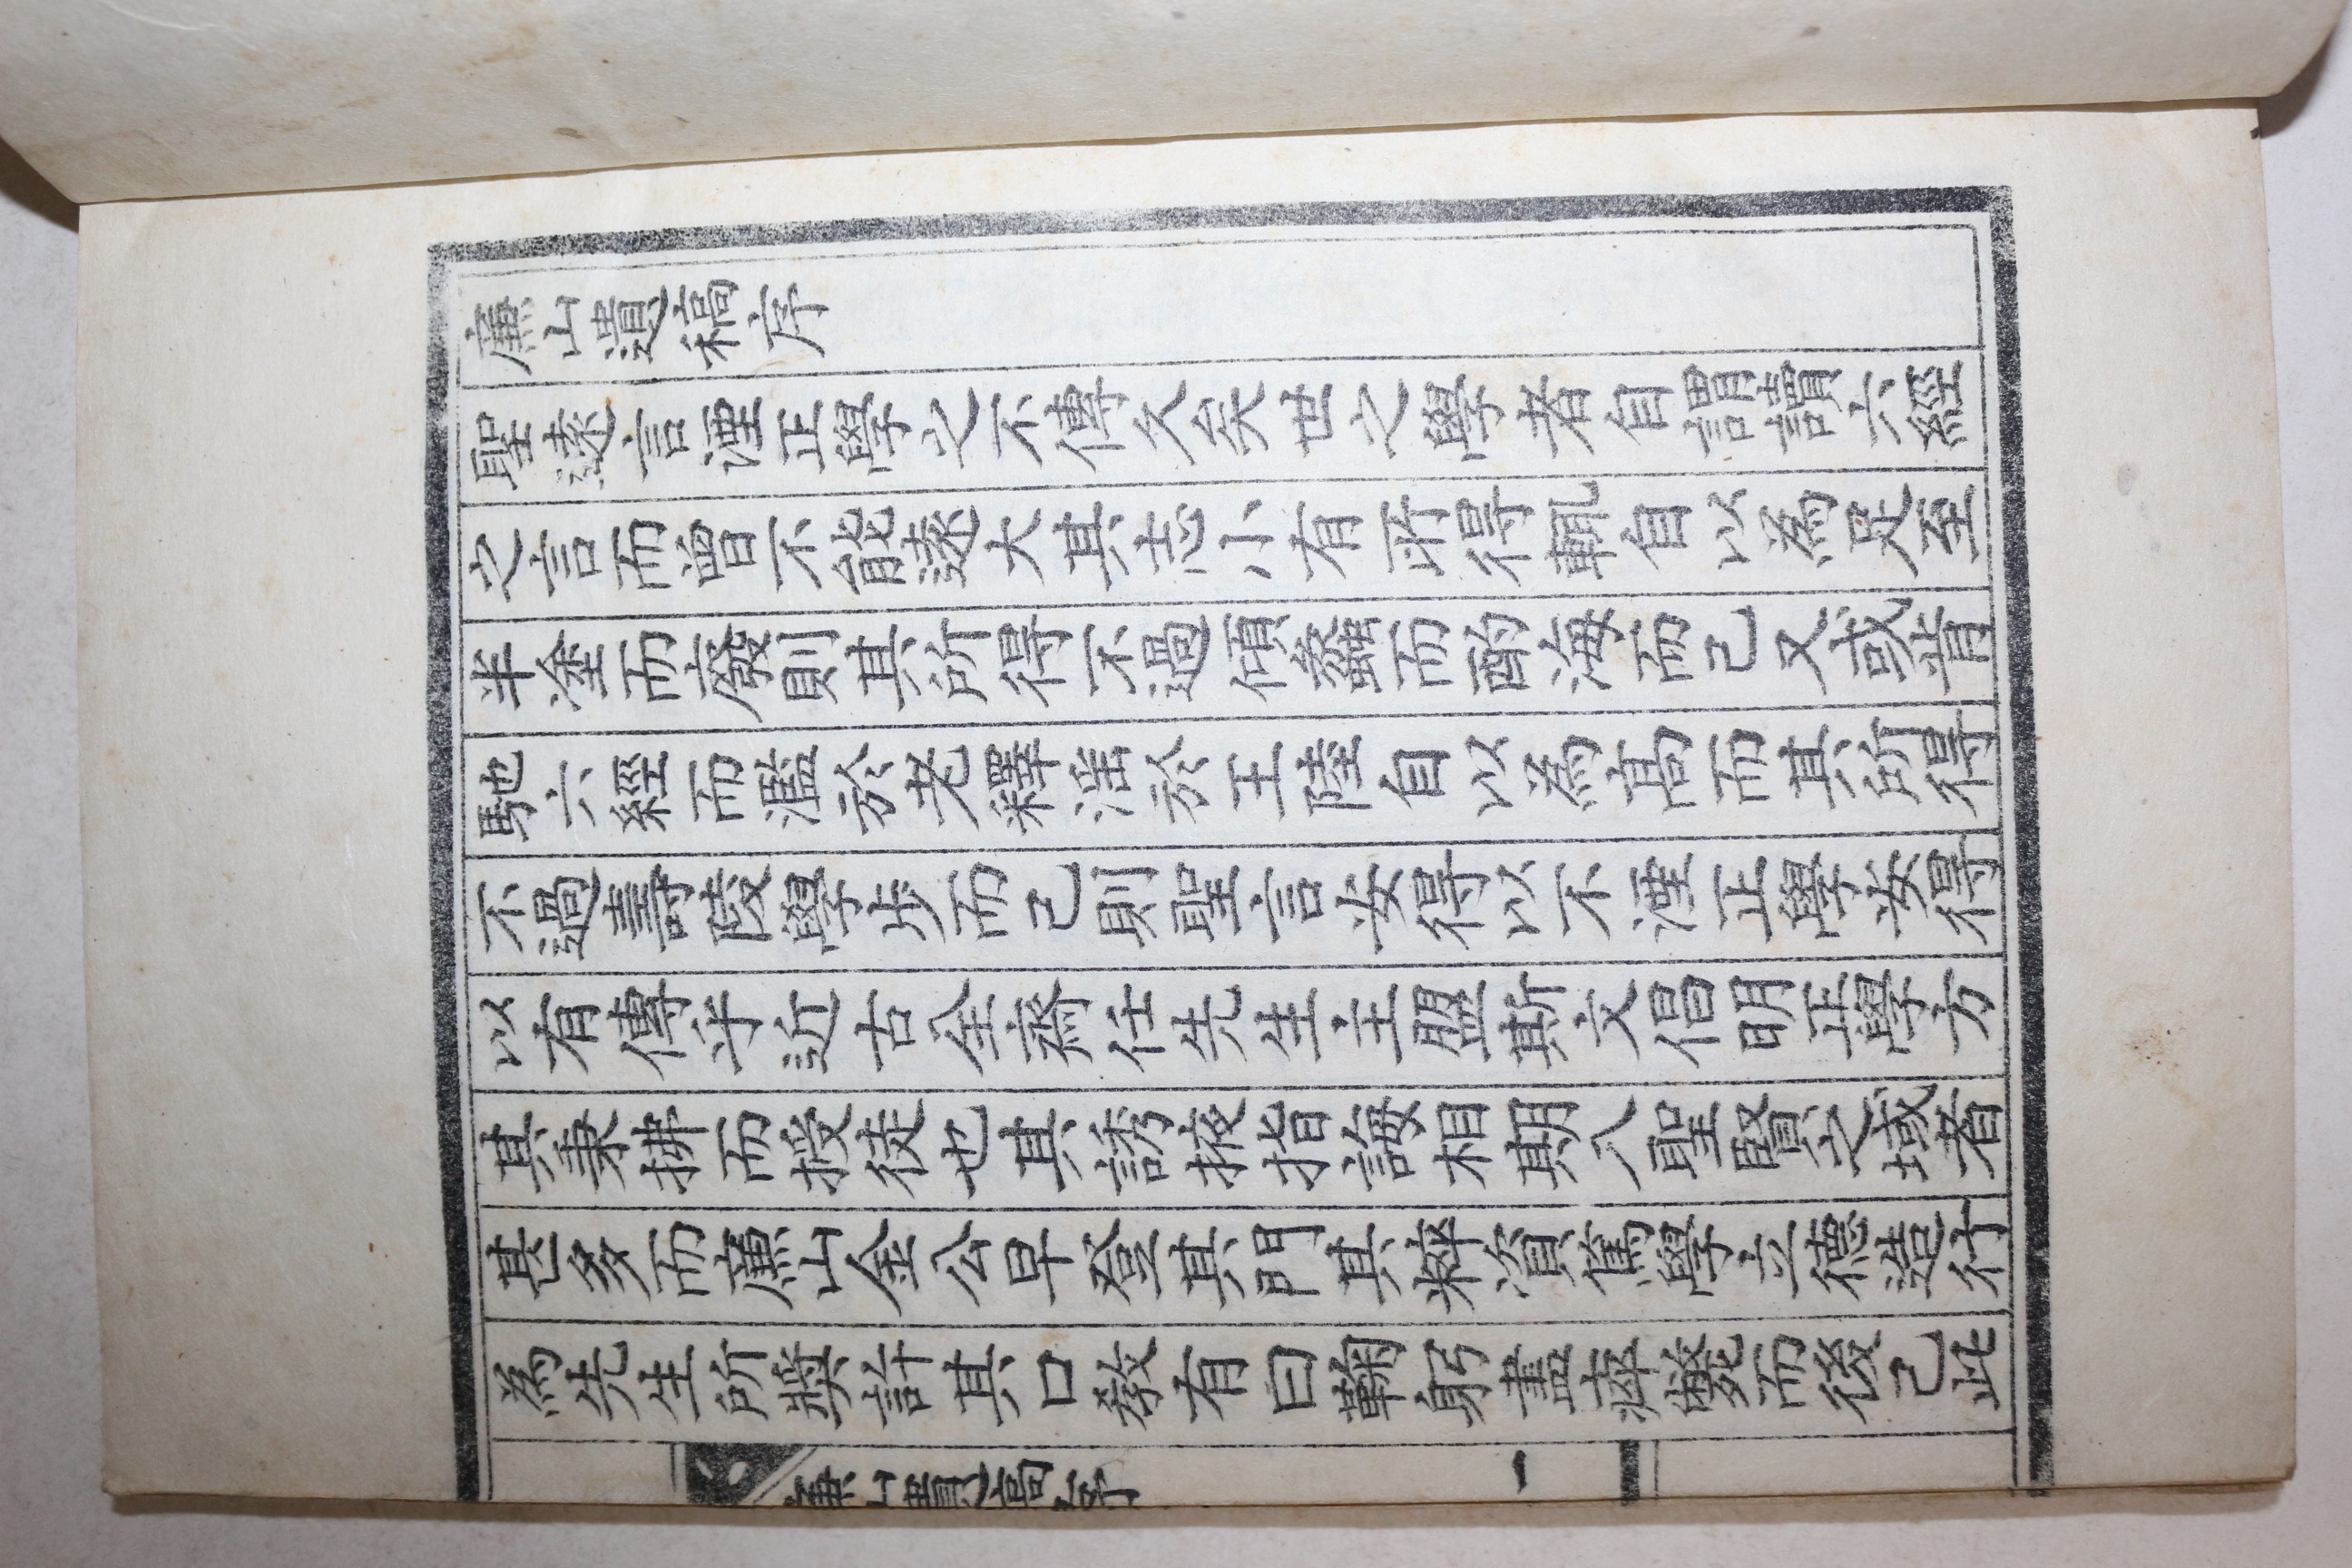 廉山遺稿序
聖遠言湮正學之不傳久矣世之學者自謂讀六經
之言而曾不能遠大其志小有所得輒自以爲足至
半塗而廢則其所得不過傾蠡而酌海而已又或背
馳六經而濫於老釋淫於王陸自以爲高而其所得
不過壽陵學步而已則聖言安得以不湮正學安得
以有傳乎近古全齋任先生主盟斯文倡明正學方
其秉拂而授徒也其誘掖指誨相期入聖賢之域者
甚多而廉山金公早登其門其粹資篤學立德造行
爲先生所奬許其口發有曰鞠躬盡瘁斃而後已此
廉山遺稿序
一